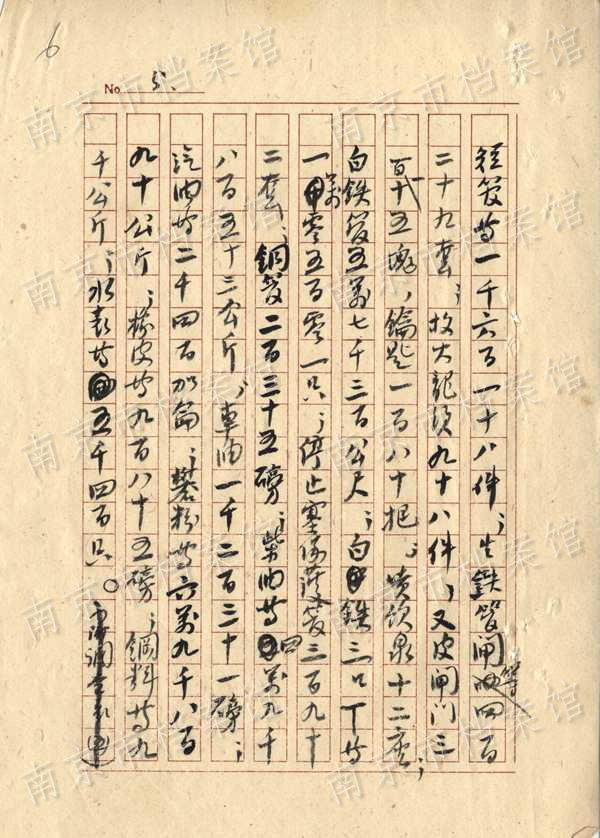 6
No. 5.
短管等一千六百一十八件；生鉄管閘等四百
二十九套；放大龍頭九十八件；又皮閘门三
百十五塊；鑰匙一百八十把。喷饮泉十二座；
白鉄管五萬七千三百公尺；白鉄三口丁等
一萬零五百零一只；停止塞 管三百九十
二套；銅管二百三十五磅；柴油等四萬九千
八百五十三公斤；車油一千二百三十一磅；
汽油等二千四百加侖；礬粉等六萬九千八百
九十公斤；橡皮等九百八十五磅；鋼料等九
千公斤；水表等五千四百只。
南京市档案馆